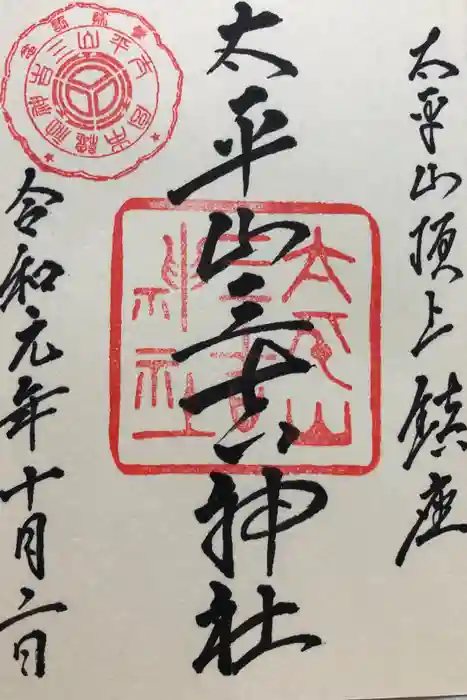 太平山頂上鎮座
太平山三吉神社
令和元年十月二日
太平山三吉神社総本宮